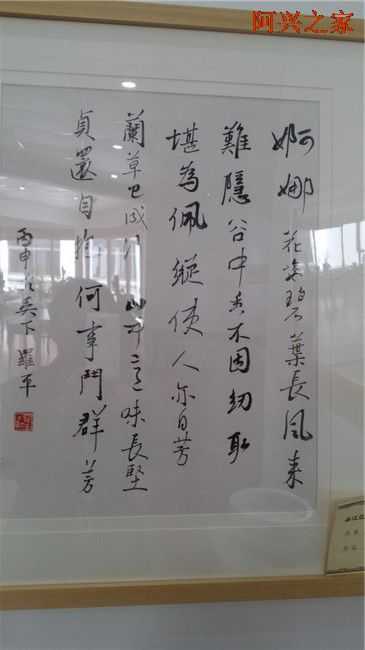 阿兴之家
婀娜花姿碧葉長風来
難隱谷中香不因紉取
堪為佩縱使人亦自芳
蘭草已成行山中意味長堅
貞還自抱何事鬥群芳
丙申吳下羅平